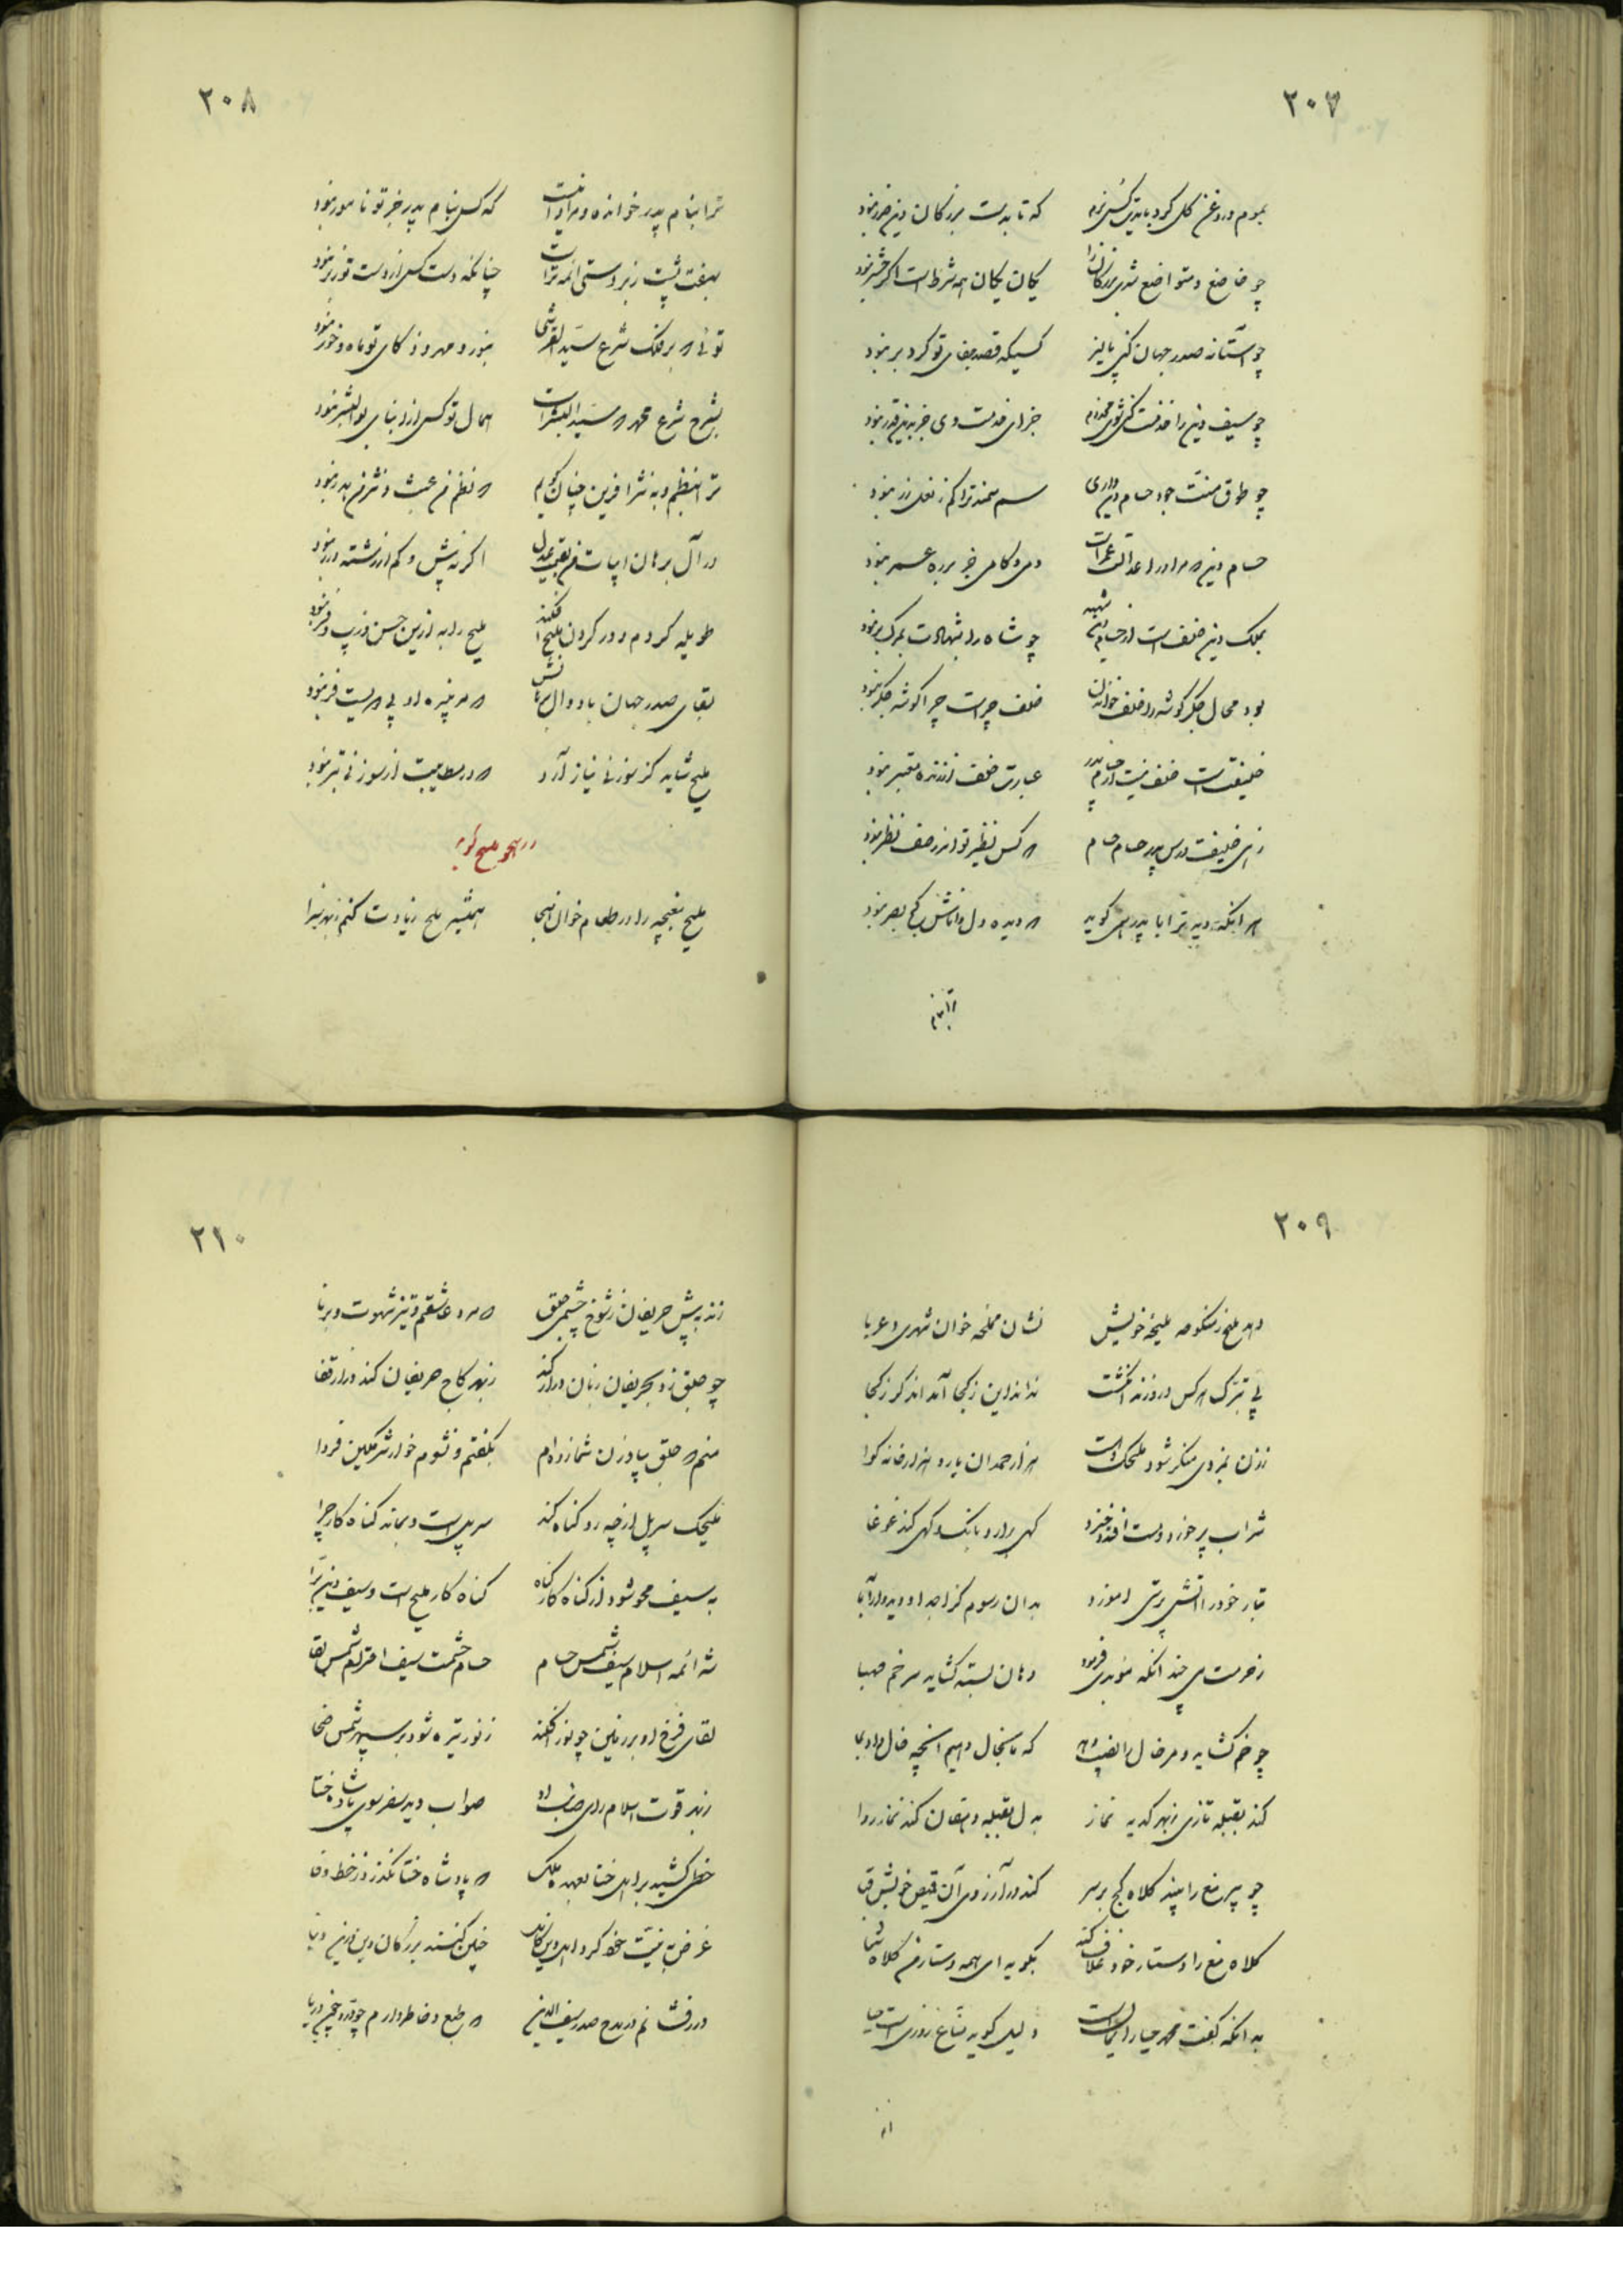 ۲۰۷
بموم و روغن گل کرد باید نرم
که تا بدست بزرگان دین نبود
چو خاضع و متواضع شدی بزرگان را
یکان یکان همه شرط است اگر نبود
چو آستانه صدر جهان کنی بالین
کسیکه قصد جفای تو کرد بر نبود
چو سیف دین را خدمت کنی شوی مخدوم
جزای خدمت وی جز بدین قدر نبود
چو طوق منت جود حسام دین داری
سم سمند ترا کم ز نعل زر نبود
حسام دین
بره عمر نبود
بملک دین خلف است از حسام دین
چو شاه را شهادت بمرگ نبود
بود محال جگرگوشه را خلف خواندن
خلف چراست چرا گوشه جگر نبود
خلیفت است خلف نیست از حسام پدر
عبارت خلف از زنده معتبر نبود
زهی خلیفت درس پدر حسام حسام
که کس نظیر تو اندر صف نظر نبود
هر آنکه دید ترا با پدر همی گوید
که دیده دل دانانش کج بصر نبود
ترا بنام
۲۰۸
ترا بنام پدر خوانده و مراد آنست
که کس بنام پدر جز تو نامور نبود
بهفت پشت زبردستی ائمه تراست
چنانکه دست کس از دست تو زبر نبود
توئی که بر فلک شرع سید القرشی
بنور و مهر و ذکای تو ماه و خور نبود
بشرح شرع محمد که سید البشر است
همال تو کس از ابنای بوالبشر نبود
ترا بنظم و به نثر آفرین چنان گویم
که نظم من عبث و نثر من هدر نبود
در آل برهان ابیات من
اگر نه بیش و کم از رشته درر نبود
طویله کردم و در گردن ملیح افکند
ملیح را به ازین حسن و زیب و فر نبود
بقای صدر جهان باد و آل برهانش
ملیح شاید کز سوزنی نیاز آرد
که در مطایبت از سوزنی بتر نبود
در هجو ملیح گوید
ملیح مغبچه را در طعام خوان هجا
همیشه ملح زیادت کنم ز بهر چرا
۲۰۹
دهد ملیح ز منکوحه ملیحه خویش
نشان مملحه خوان شهری و غربا
پی تبرک هر کس در و زند انگشت
نداند این ز کجا آمد آن دگر ز کجا
ززن بمزدی منکر شود ملیحک و هست
هزار حمدان یار و هزار خانه گوا
شراب پر خورد و مست افتد و خیزد
گهی برآرد بانگ و گهی کند غوغا
تبار خود را آتش پرستی آموزد
بدان رسوم کز اجداد دید و از آبا
دهان بسته گشاید سر خم صهبا
چو خم گشاید و مر خال را نصیب دهد
که تا بخال دهیم آنچه خال داد بما
کند بقبله تازی ز بهر گدیه نماز
به دل بقبله دهقان کند نماز روا
چو پیر مغ را بیند کلاه کج بر سر
کند در آرزوی آن قمیص خویش قبا
کلاه مغ را دستار خود غلاف کند
بگوید ای همه دستار من کلاه شما
بدانکه گفت محمد حیا ز ایمانست
دلیل گوید مناع روزی است حیا
۲۱۰
زند به پیش حریفان ز شوخ چشمی جلق
که مرد عاشقم و تیز شهوت و برنا
چو جلق زد بحریفان زبان دراز کند
ز بهر کاج حریفان کند دراز قفا
منم که جلق بیاد زن شما زده‌ام
بگفتم و نشوم خوار و شرمگین فردا
ملیحک سر پل از چه رو گناه کند
سر پل است و نماند گناهکار چرا
به سیف محو شود از گناهکار گناه
گناهکار ملیح است و سیف دین برا
شه ائمه اسلام سیف شمس حسام
حسام حشمت سیف احترام شمس لقا
لقای فرخ او بر زمین چو نور افکند
ز نور تیره شود بر سپهر شمس ضحا
ز بهر قوت اسلام رای صائب او
صواب دید سفر سوی پادشاه ختا
خطی کشید بر اهل ختا بعهده ملک
که پادشاه ختا نگذرد ز خط وفا
چنین کنند بزرگان دین و زین دنیا
در فشانم در مدح صدر سیف الدین
که طبع و خاطر دارم چو در و چون دریا